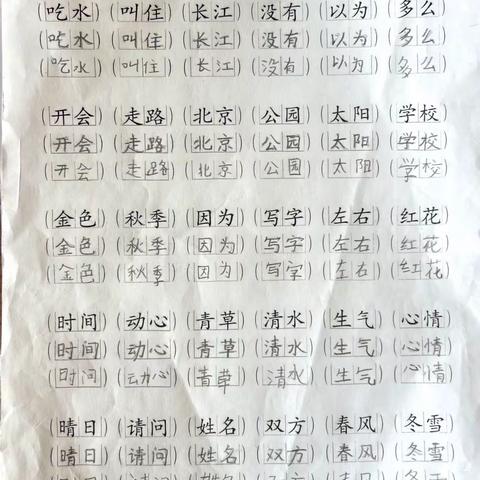 (吃水) (叫住) (长江) (没有) (以为) (多么)
(吃水) (叫住) (长江) (没有) (以为) (多么)
(吃水) (叫住) (长江) (没有) (以为) (多么)
(开会) (走路) (北京) (公园) (太阳) (学校)
(开会) (走路) (北京) (公园) (太阳) (学校)
(开会) (走路) (北京) (公园) (太阳) (学校)
(金色) (秋季) (因为) (写字) (左右) (红花)
(金色) (秋季) (因为) (写字) (左右) (红花)
(金色) (秋季) (因为) (写字) (左右) (红花)
(时间) (动心) (青草) (清水) (生气) (心情)
(时间) (动心) (青草) (清水) (生气) (心情)
(时间) (动心) (青草) (清水) (生气) (心情)
(晴日) (请问) (姓名) (双方) (春风) (冬雪)
(晴日) (请问) (姓名) (双方) (春风) (冬雪)